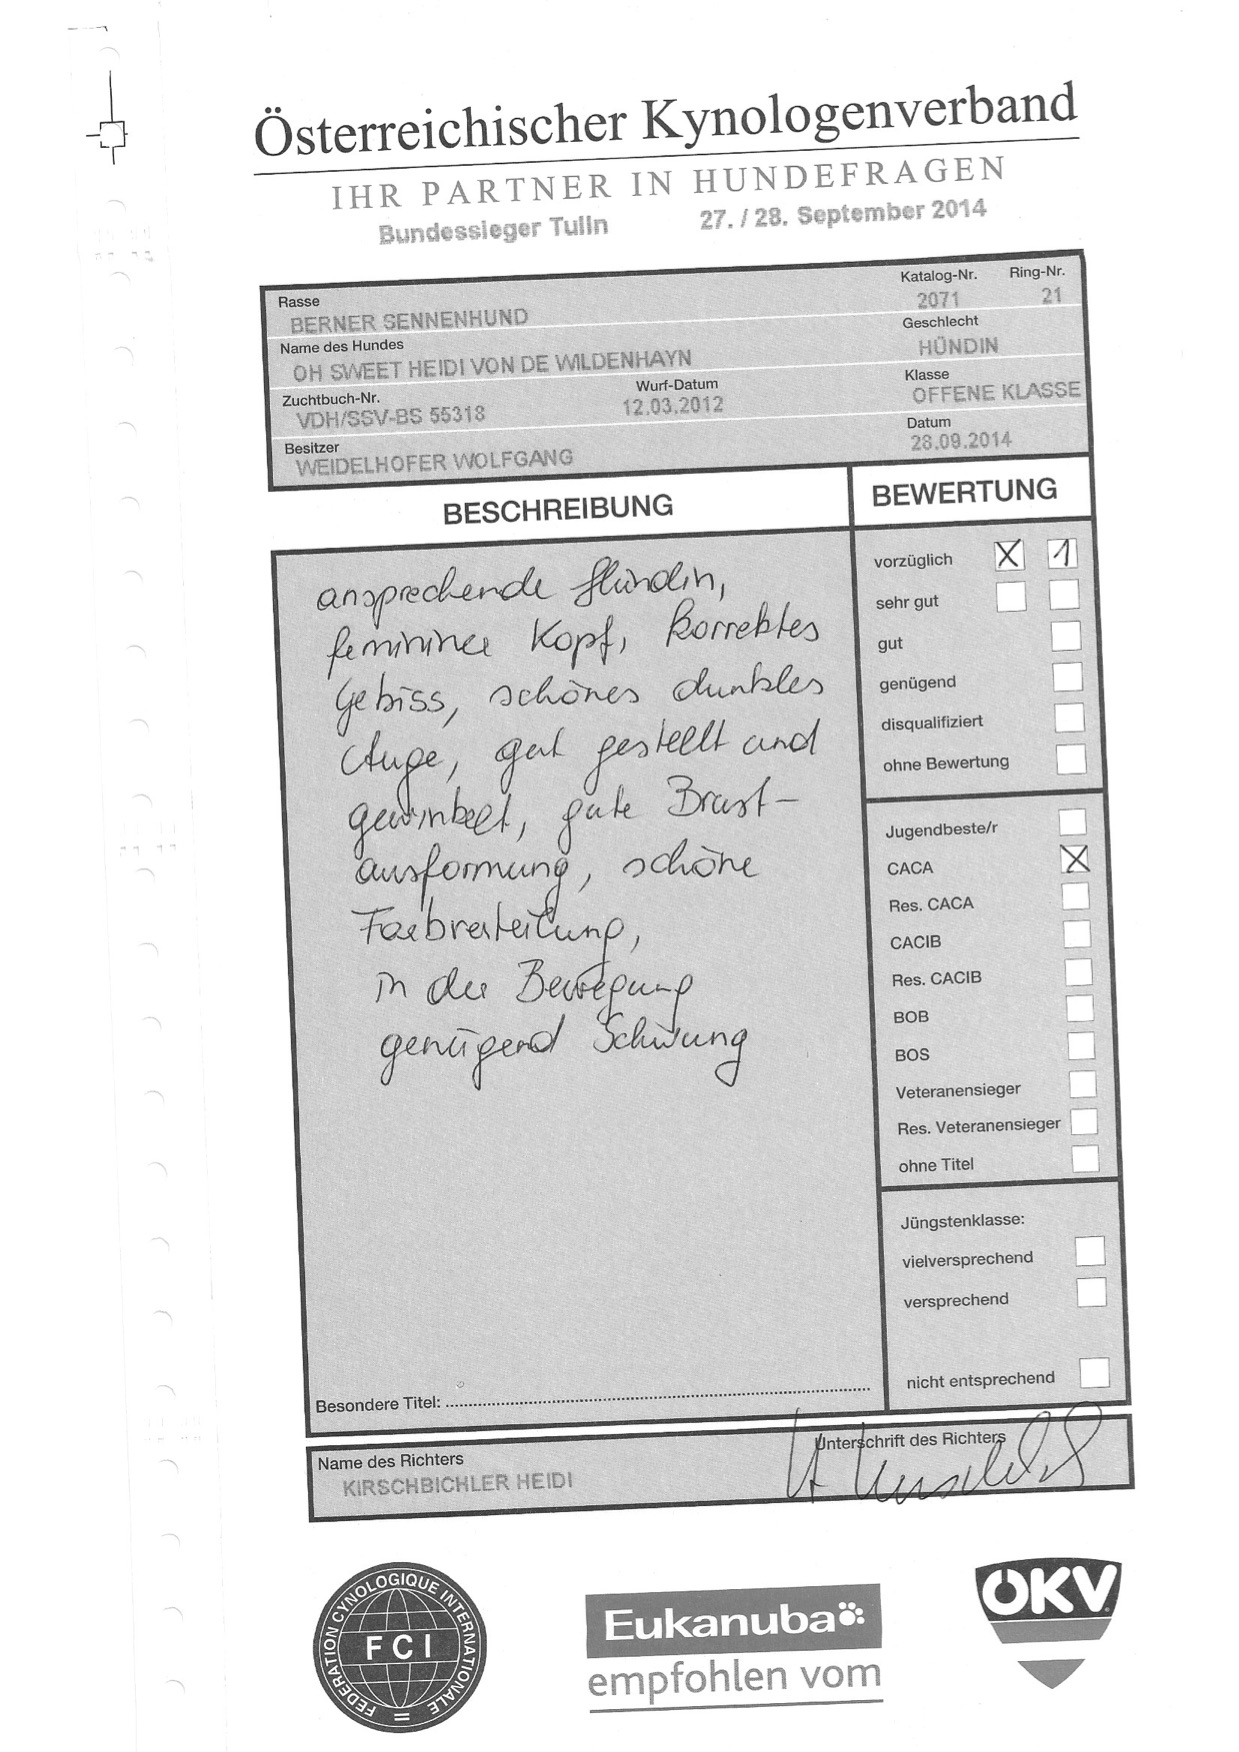 Österreichischer Kynologenverband
IHR PARTNER IN HUNDEFRAGEN
Bundessieger Tulln 27. / 28. September 2014
Rasse Katalog-Nr. Ring-Nr.
BERNER SENNENHUND 2071 21
Name des Hundes Geschlecht
OH SWEET HEIDI VON DE WILDENHAYN HÜNDIN
Zuchtbuch-Nr. Wurf-Datum Klasse
VDH/SSV-BS 55318 12.03.2012 OFFENE KLASSE
Besitzer Datum
WEIDELHOFER WOLFGANG 28.09.2014
BESCHREIBUNG
ansprechende Hündin,
femininer Kopf, korrektes
Gebiss, schönes dunkles
Auge, gut gestellt und
gewinkelt, gute Brust-
ausformung, schöne
Farbverteilung,
in der Bewegung
genügend Schwung
Besondere Titel:
BEWERTUNG
vorzüglich X 1
sehr gut
gut
genügend
disqualifiziert
ohne Bewertung
Jugendbeste/r
CACA X
Res. CACA
CACIB
Res. CACIB
BOB
BOS
Veteranensieger
Res. Veteranensieger
ohne Titel
Jüngstenklasse:
vielversprechend
versprechend
nicht entsprechend
Name des Richters Unterschrift des Richters
KIRSCHBICHLER HEIDI
FEDERATION CYNOLOGIQUE INTERNATIONALE
FCI
Eukanuba
empfohlen vom
ÖKV